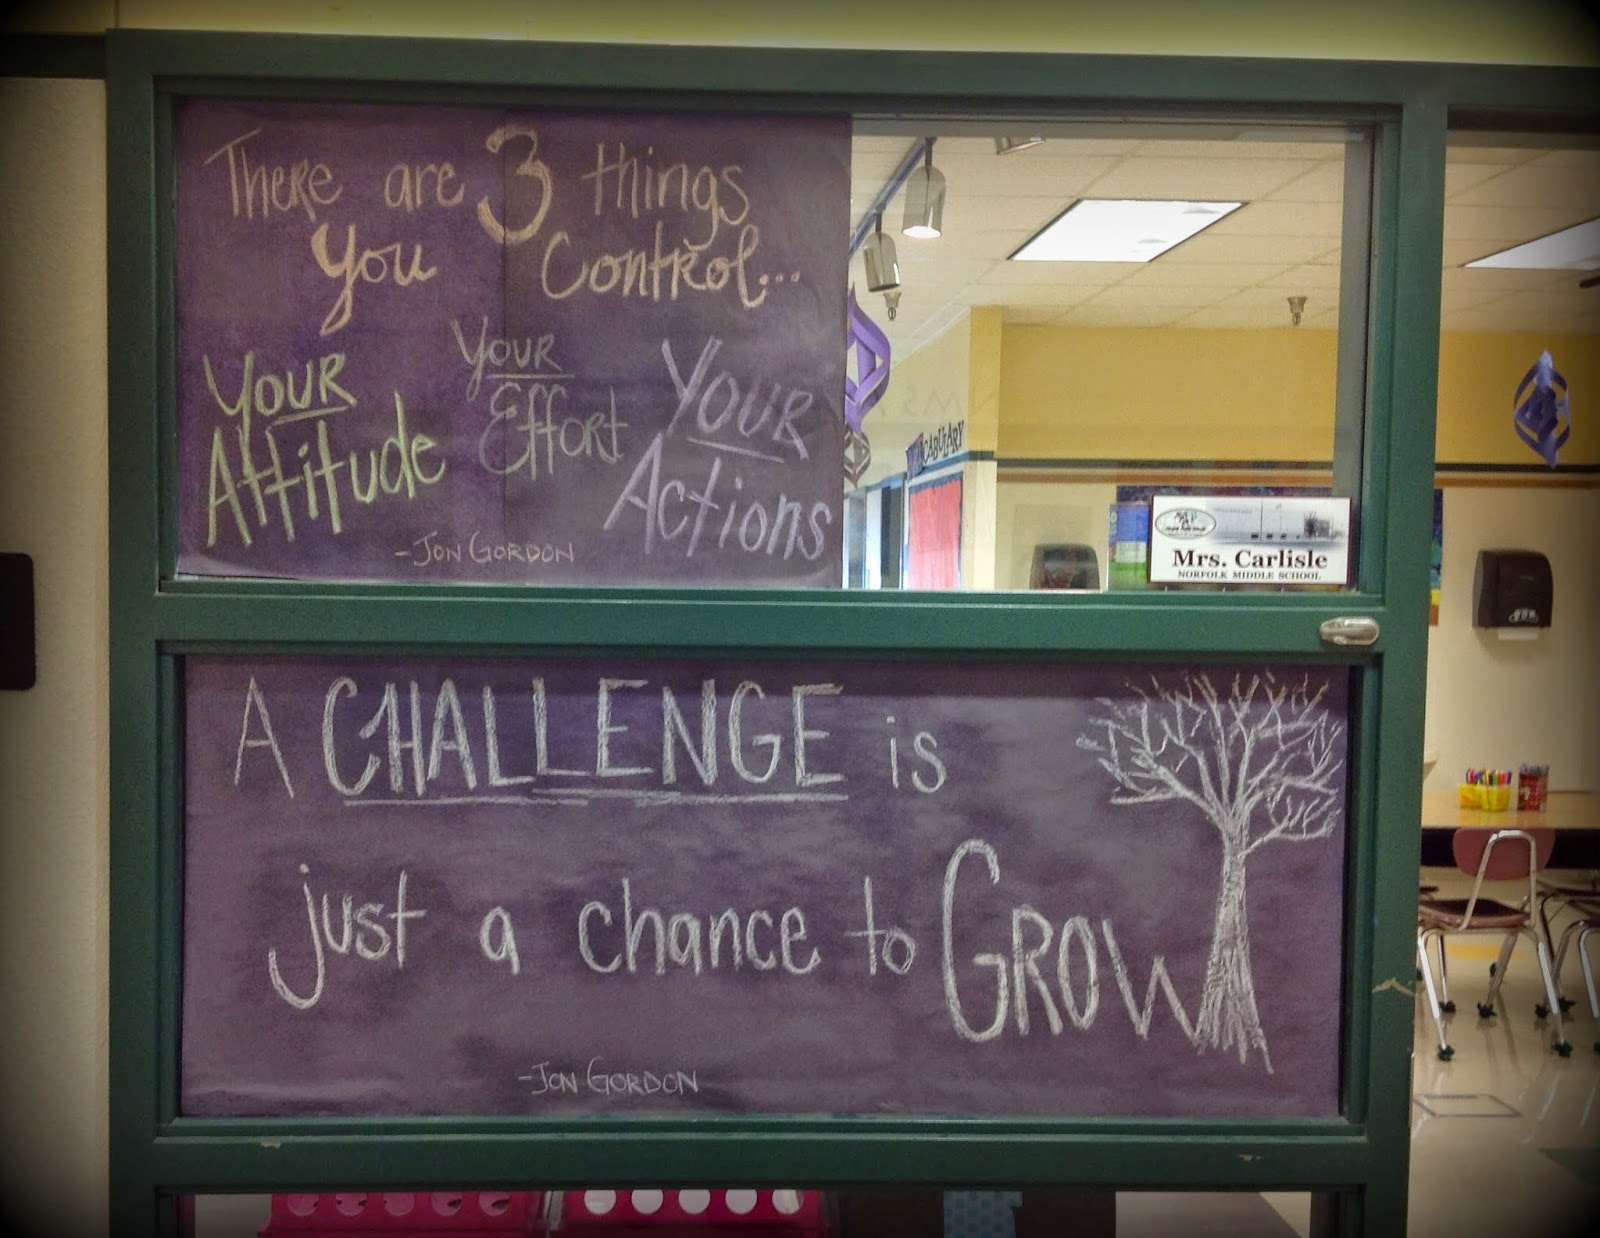 There are 3 things
you control...
Your Attitude
Your Effort
Your Actions
-Jon Gordon
CABULARY
Mrs. Carlisle
NORFOLK MIDDLE SCHOOL
A CHALLENGE is
just a chance to GROW
-Jon Gordon